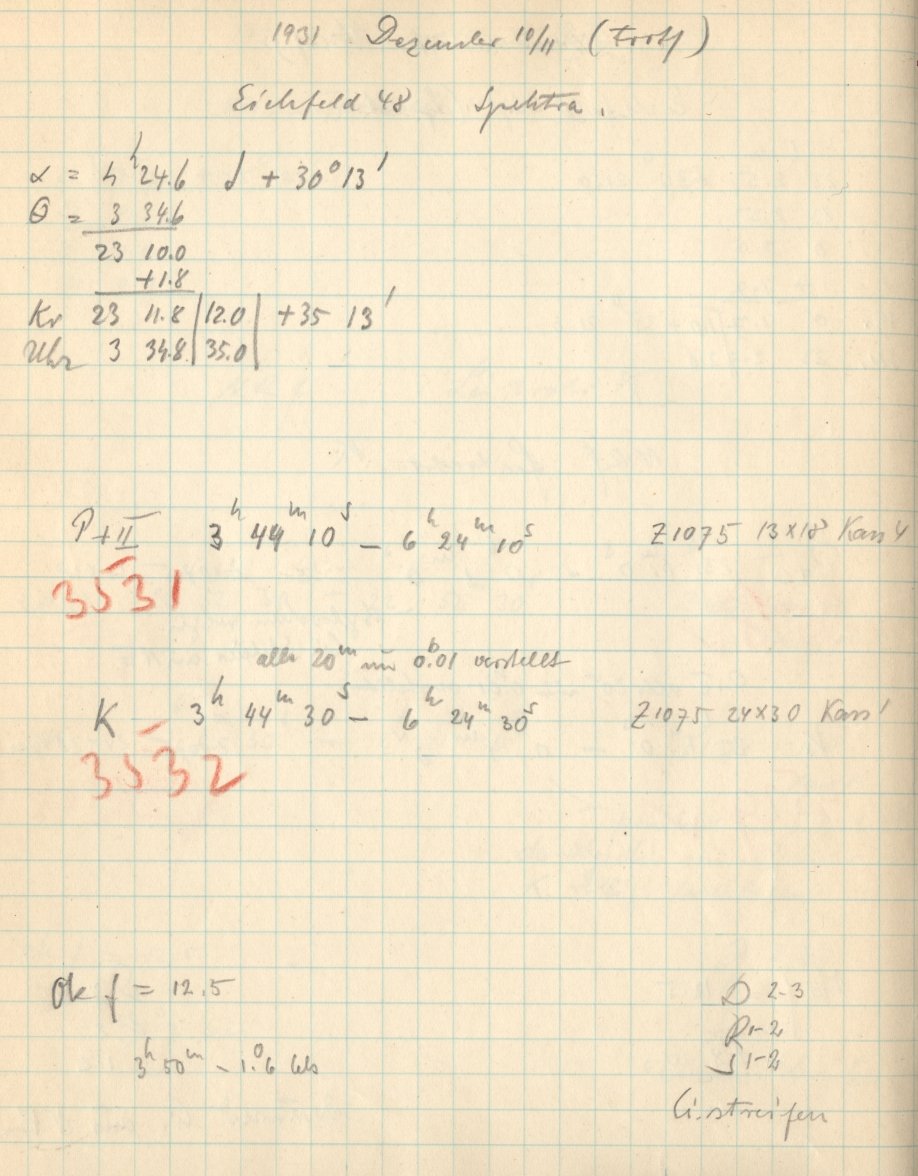 1931 Dezember 10/11 (Frost)
Eichfeld 48 Spektra.
α = 4ʰ 24.6 δ + 30° 13'
θ = 3 34.6
23 10.0
+1.8
Kr 23 11.8 | 12.0 | +35 13'
Uhr 3 34.8 | 35.0 |
P+II 3ʰ 44ᵐ 10ˢ – 6ʰ 24ᵐ 10ˢ Z1075 13x18 Kass 4
3531
alle 20ᵐ um 0.01 verstellt
K 3ʰ 44ᵐ 30ˢ – 6ʰ 24ᵐ 30ˢ Z1075 24x30 Kass 1
3532
Ok f = 12.5
3ʰ 50ᵐ – 1.°6
D 2-3
R 1-2
S 1-2
Ci.streifen